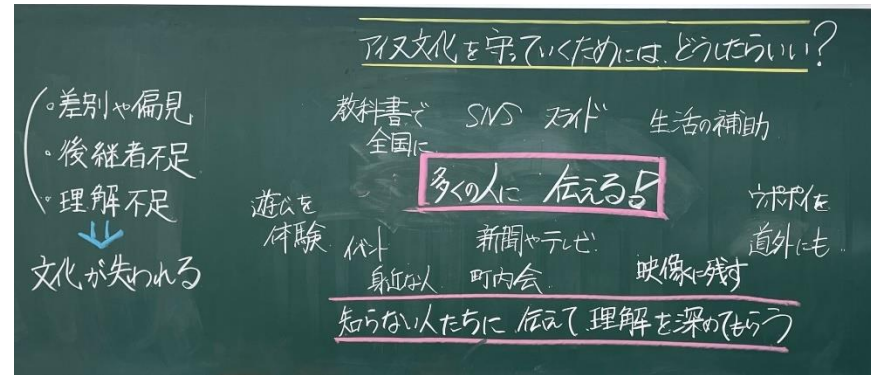 アイヌ文化を守っていくためには、どうしたらいい?
・差別や偏見
・後継者不足
・理解不足
文化が失われる
教科書で
全国に
SNS
スライド
生活の補助
多くの人に 伝える!
遊びを
体験
イベント
身近な人
新聞やテレビ
町内会
映像に残す
ウポポイを
道外にも
知らない人たちに 伝えて 理解を深めてもらう